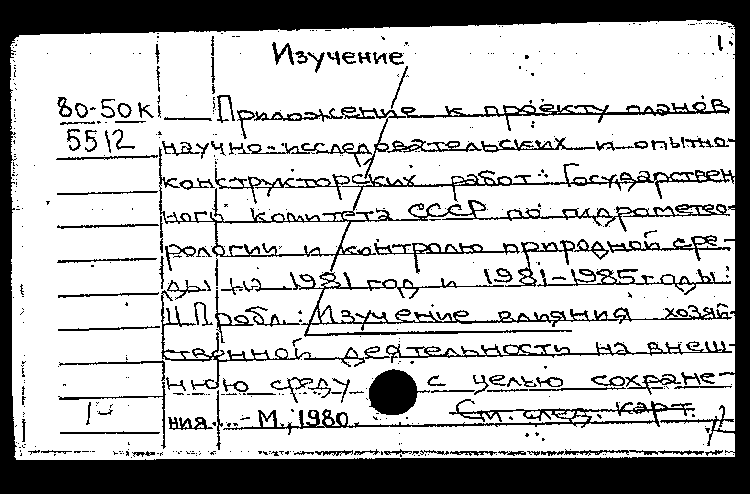 Изучение
1.
80-50к Приложение к проекту планов
5512 научно-исследовательских и опытно-
конструкторских работ: Государствен
ного комитета СССР по гидрометео-
рологии и контролю природной сре-
ды на 1981 год и 1981-1985 годы:
Пробл.: Изучение влияния хозяй-
ственной деятельности на внеш-
нюю среду с целью сохране-
ния...-М., 1980. См. след. карт.